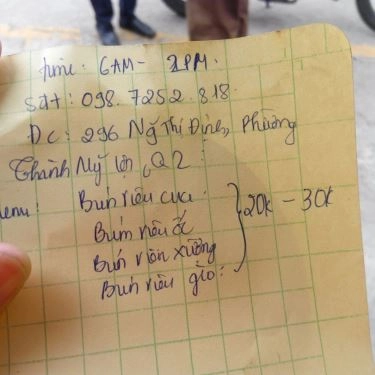 time: 6AM - 2PM.
sđt: 098.7252.818.
Đc: 296 Ng Thị Định, Phường
Thành Mỹ Lợi, Q2
Menu: Bún riêu cua
Bún riêu ốc
Bún riêu xương
Bún riêu giò.
20k - 30k